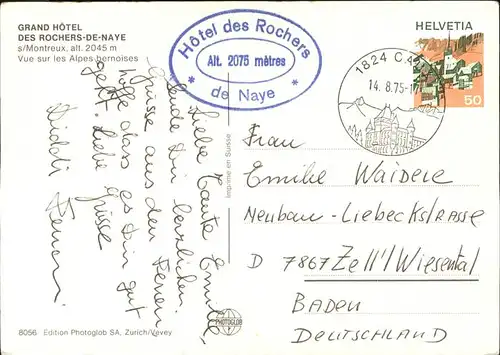 GRAND HÔTEL
DES ROCHERS-DE-NAYE
s/Montreux, alt. 2045 m
Vue sur les Alpes bernoises
Hôtel des Rochers
Alt. 2075 mètres
* de Naye *
HELVETIA
50
1824 C
14.8.75-1
Liebe Tante Emilie,
sende Dir herzlichen
Grüsse aus den Ferien
hoffe dass es Dir gut
geht. Liebe Grüsse
Imprimé en Suisse
Frau
Emilie Waidele
Neubau-Liebeckstrasse
D 7867 Zell i/Wiesental
BADEN
DEUTSCHLAND
PHOTOGLOB
8056 Edition Photoglob SA, Zurich/Vevey